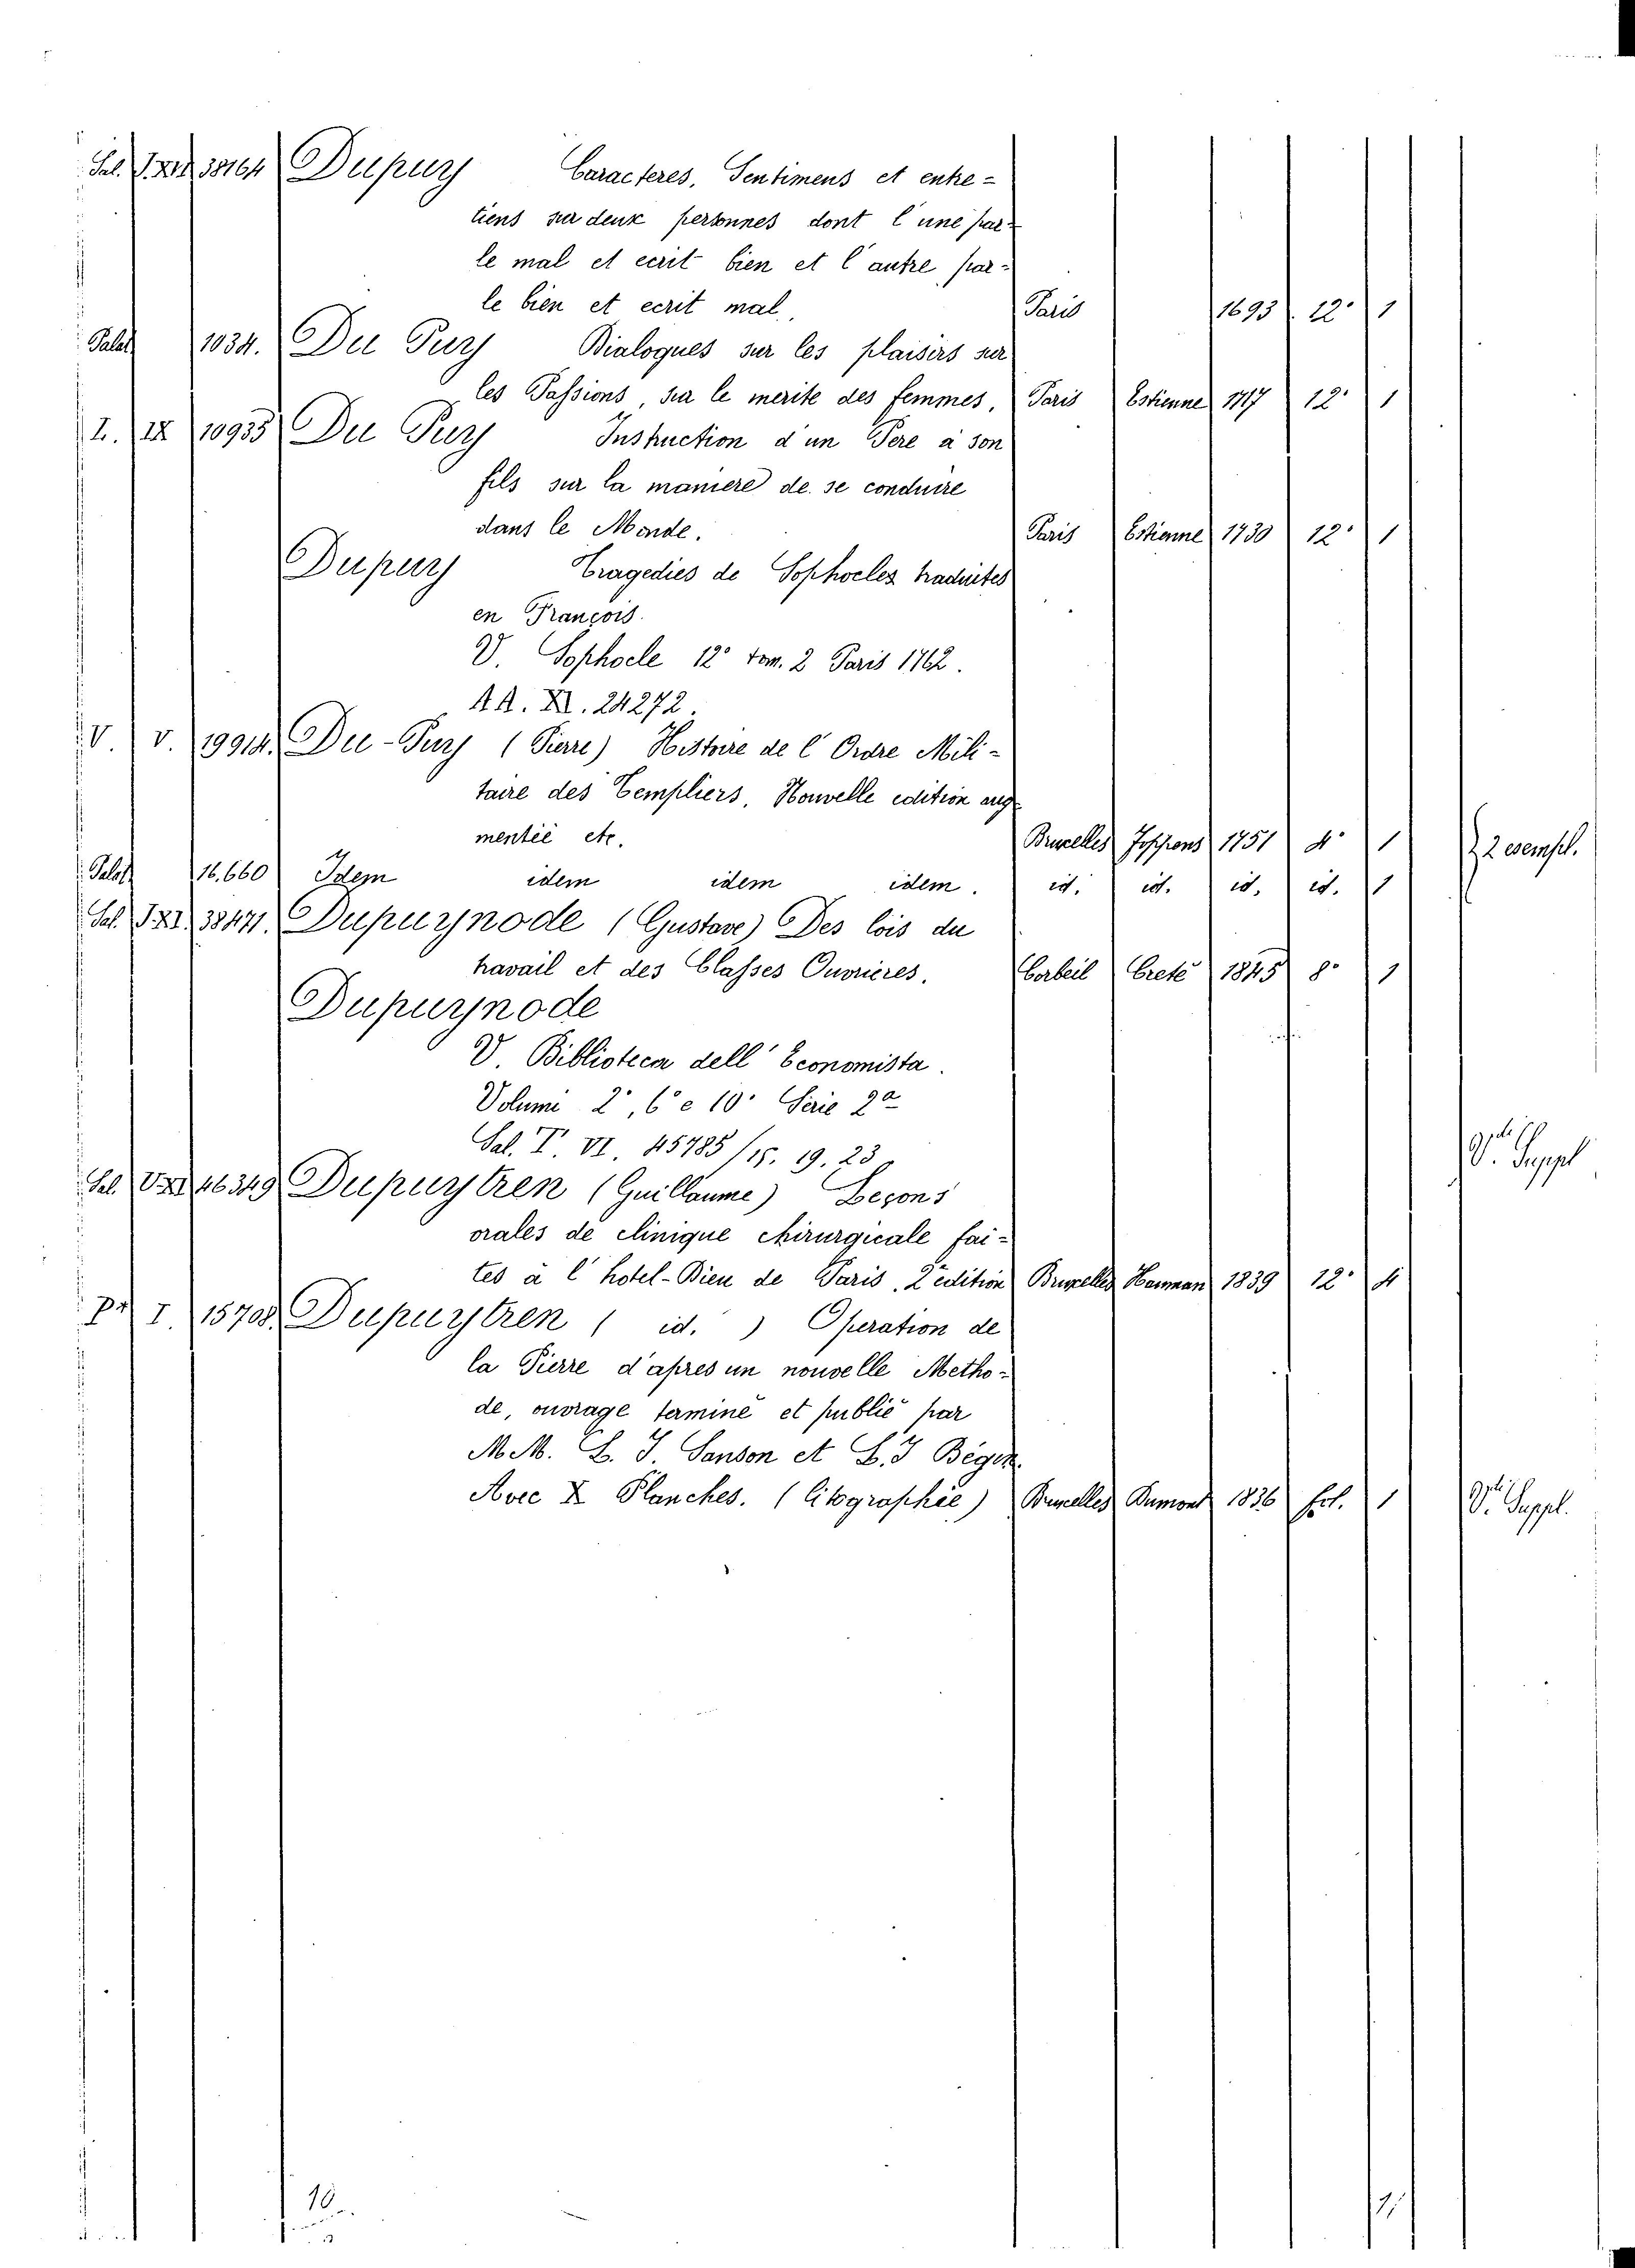 Sal. 38164 Dupuy Caracteres, Sentimens et entre-
tiens sur deux personnes dont l'une par-
le mal et ecrit bien et l'autre par-
le bien et ecrit mal. Paris 1693 12° 1
Palat 1034. Du Puy Dialogues sur les plaisirs sur
les Passions, sur le merite des femmes, Paris Estienne 1717 12° 1
L. IX 10935 Du Puy Instruction d'un Pere à son
fils sur la maniere de se conduire
dans le Monde. Paris Estienne 1730 12° 1
Dupuy Tragedies de Sophocles traduites
en François.
V. Sophocle 12° tom. 2 Paris 1762.
AA. XI. 24272.
V. V. 19914. Du-Puy (Pierre) Histoire de l'Ordre Mili-
taire des Templiers, Nouvelle edition aug-
mentée etc. Bruxelles Foppens 1751 4° 1 2 esempl.
Palat 16.660 Idem idem idem idem. id. id. id. id. 1
Sal. 38471. Dupuynode (Gustave) Des lois du
travail et des Classes Ouvrieres. Corbeil Creté 1845 8° 1
Dupuynode
V. Biblioteca dell'Economista.
Volumi 2°, 6° e 10° Serie 2a
Sal. T. VI. 45785/15. 19. 23 V. Suppl
Sal. 46349 Dupuytren (Guillaume) Leçons
orales de clinique chirurgicale fai-
tes à l'hotel-Dieu de Paris. 2 edition Bruxelles Hauman 1839 12° 4
I 15708. Dupuytren (id.) Operation de
la Pierre d'apres un nouvelle Metho-
de, ouvrage terminé et publié par
M.M. L. J. Sanson et L. J Bégin.
Avec X Planches. (litographée) Bruxelles Dumont 1836 fol. 1 V. Suppl.
10.